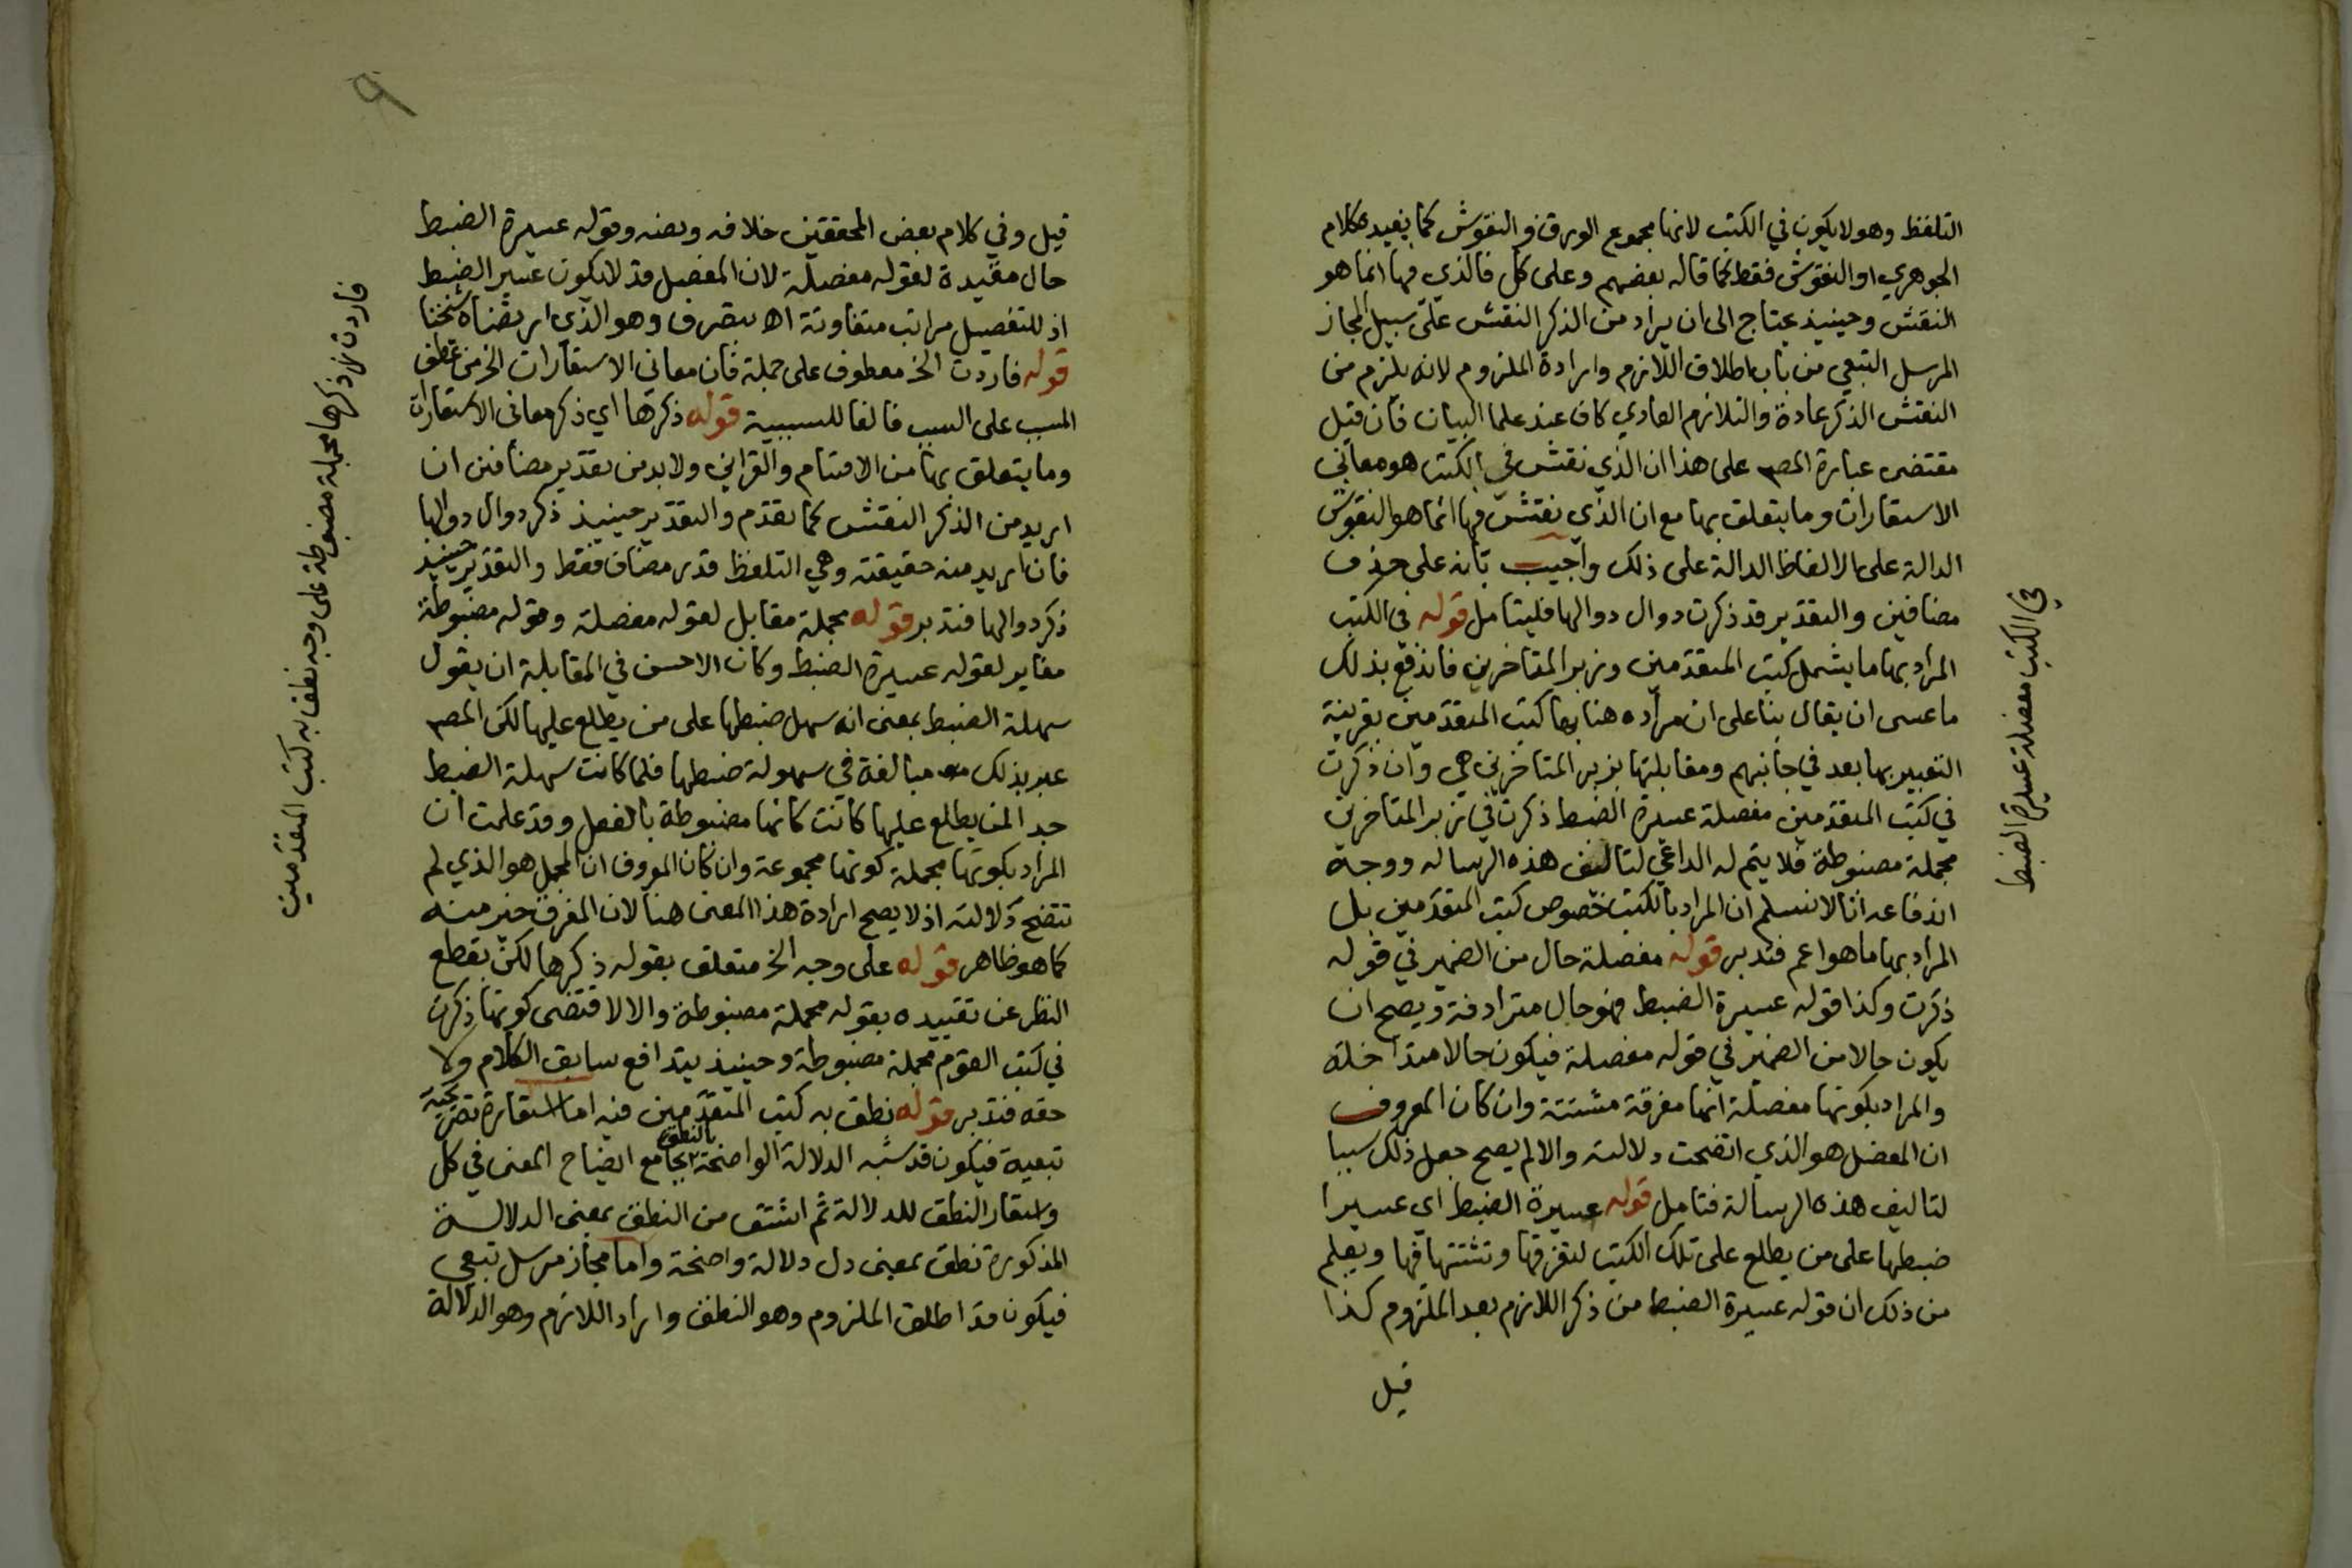 التلفظ وهو لا يكون في الكتب لانها مجموع الورق والنقوش كما يفيده كلام
الجوهري او النقوش فقط كما قاله بعضهم وعلى كل فالذي فيها انما هو
النقش وحينيذ يحتاج الى ان يراد من الذكر النقش على سبيل المجاز
المرسل التبعي من باب اطلاق اللازم وارادة الملزوم لانه يلزم من
النقش الذكر عادة والتلازم العادي كاف عند علما البيان فان قيل
مقتضى عبارة المصـ على هذا ان الذي نقش في الكتب هو معاني
الاستعارات وما يتعلق بها مع ان الذي نقش فيها انما هو النقوش
الدالة على الالفاظ الدالة على ذلك واجيب بانه على حذف
مضافين والتقدير قد ذكرت دوال دوالها فليتامل قوله في الكتب
المراد بها ما يشمل كتب المتقدمين وزبر المتاخرين فاندفع بذلك
ما عسى ان يقال بنا على ان مراده هنا بها كتب المتقدمين بقرينة
التعبير بها بعد في جانبهم ومقابلتها بزبر المتاخرين هي وان ذكرت
في كتب المتقدمين مفصلة عسيرة الضبط ذكرت في زبر المتاخرين
مجملة مضبوطة فلا يتم له الداعي لتاليف هذه الرساله ووجه
اندفاعه انا لا نسلم ان المراد بالكتب خصوص كتب المتقدمين بل
المراد بها ما هو اعم فتدبر قوله مفصلة حال من الضمير في قوله
ذكرت وكذا قوله عسيرة الضبط فهو حال مترادفة ويصح ان
يكون حالا من الضمير في قوله مفصلة فيكون حالا متداخلة
والمراد بكونها مفصلة انها مفرقة مشتتة وان كان المعروف
ان المفصل هو الذي اتضحت دلالته والا لم يصح جعل ذلك سببا
لتاليف هذه الرسالة فتامل قوله عسيرة الضبط اي عسيرا
ضبطها على من يطلع على تلك الكتب لتفرقها وتشتتها فيها ويعلم
من ذلك ان قوله عسيرة الضبط من ذكر اللازم بعد الملزوم كذا
قيل
في الكتب مفصلة عسيرة الضبط
٩
قيل وفي كلام بعض المحققين خلافه ونصه وقوله عسيرة الضبط
حال مقيدة لقوله مفصلة لان المفصل قد لا يكون عسير الضبط
اذ للتفصيل مراتب متفاوتة اهـ بتصرف وهو الذي ارتضاه شيخنا
قوله فاردت الخ معطوف على جملة فان معاني الاستعارات الخ من عطف
المسبب على السبب فالفا للسببية قوله ذكرها اي ذكر معاني الاستعارات
وما يتعلق بها من الاقسام والقراين ولا بد من تقدير مضافين ان
اريد من الذكر النقش كما تقدم والتقدير حينيذ ذكر دوال دوالها
فان اريد منه حقيقته وهي التلفظ قدر مضاف فقط والتقدير حينيذ
ذكر دوالها فتدبر قوله مجملة مقابل لقوله مفصلة وقوله مضبوطة
مغاير لقوله عسيرة الضبط وكان الاحسن في المقابلة ان يقول
سهلة الضبط بمعنى انه سهل ضبطها على من يطلع عليها لكن المصـ
عبر بذلك مبالغة في سهولة ضبطها فلما كانت سهلة الضبط
جدا لمن يطلع عليها كانت كانها مضبوطة بالفعل وقد علمت ان
المراد بكونها مجملة كونها مجموعة وان كان المعروف ان المجمل هو الذي لم
تتضح دلالته اذ لا يصح ارادة هذا المعنى هنا لان المفرق خير منه
كما هو ظاهر قوله على وجه الخ متعلق بقوله ذكرها لكن بقطع
النظر عن تقييده بقوله مجملة مضبوطة والا لاقتضى كونها ذكرت
في كتب القوم مجملة مضبوطة وحينيذ يتدافع سابق الكلام ولا
حقه فتدبر قوله نطق به كتب المتقدمين فيه اما استعارة تصريحية
تبعية فيكون قد شبه الدلالة الواضحة بالنطق بجامع ايضاح المعنى في كل
واستعار النطق للدلالة ثم اشتق من النطق بمعنى الدلالة
المذكورة نطق بمعنى دل دلالة واضحة واما مجاز مرسل تبعي
فيكون قد اطلق الملزوم وهو النطق واراد اللازم وهو الدلالة
فاردت ذكرها مجملة مضبوطة على وجه نطق به كتب المتقدمين